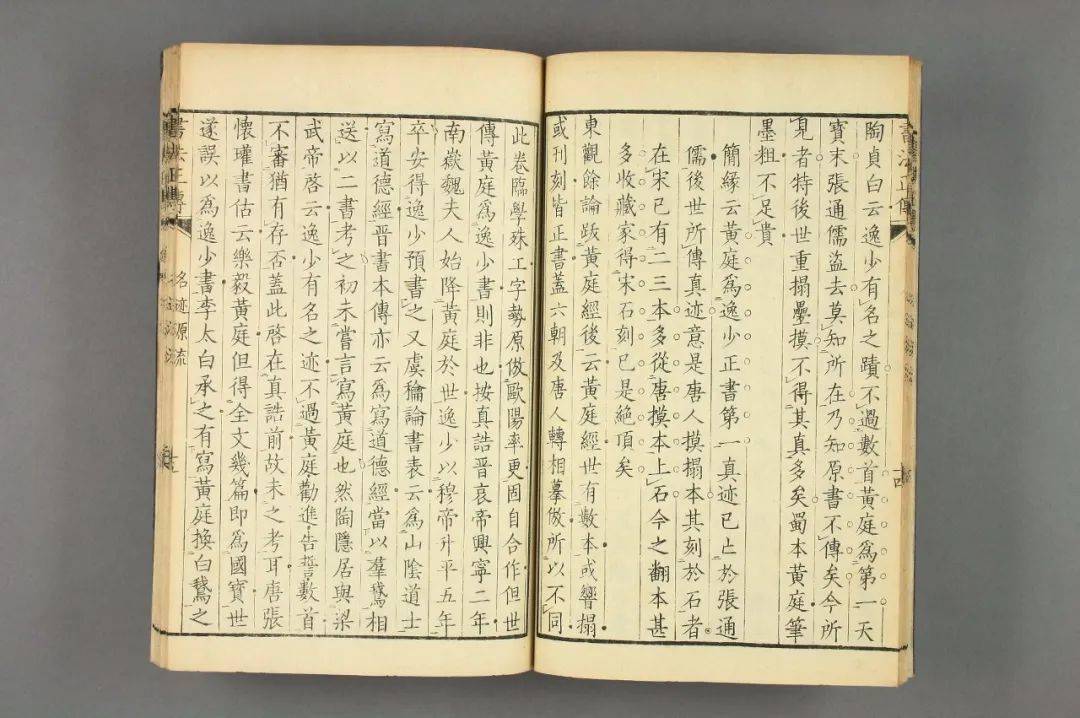 陶貞白云逸少有名之蹟不過數首黃庭爲第一天
寶末張通儒盜去莫知所在乃知原書不傳矣今所
見者特後世重搨疊摸不得其真多矣蜀本黃庭筆
墨粗不足貴
簡緣云黃庭爲逸少正書第一真迹已亡於張通
儒後世所傳真迹意是唐人摸搨本其刻於石者
在宋已有二三本多從唐摸本上石今之翻本甚
多收藏家得宋石刻已是絕頂矣
東觀餘論跋黃庭經後云黃庭經世有數本或響搨
或刊刻皆正書蓋六朝及唐人轉相摹倣所以不同
此卷臨學殊工字勢原倣歐陽率更固自合作但世
傳黃庭爲逸少書則非也按真誥晉哀帝興寧二年
南嶽魏夫人始降黃庭於世逸少以穆帝升平五年
卒安得逸少預書之又虞龢論書表云爲山陰道士
寫道德經晉書本傳亦云爲寫道德經當以羣鵞相
送以二書考之初未嘗言寫黃庭也然陶隱居與梁
武帝啓云逸少有名之迹不過黃庭勸進告誓數首
不審猶有存否蓋此啓在真誥前故未之考耳唐張
懷瓘書估云樂毅黃庭但得全文幾篇即爲國寶世
遂誤以爲逸少書李太白承之有寫黃庭換白鵞之
書法正傳
名迹原流